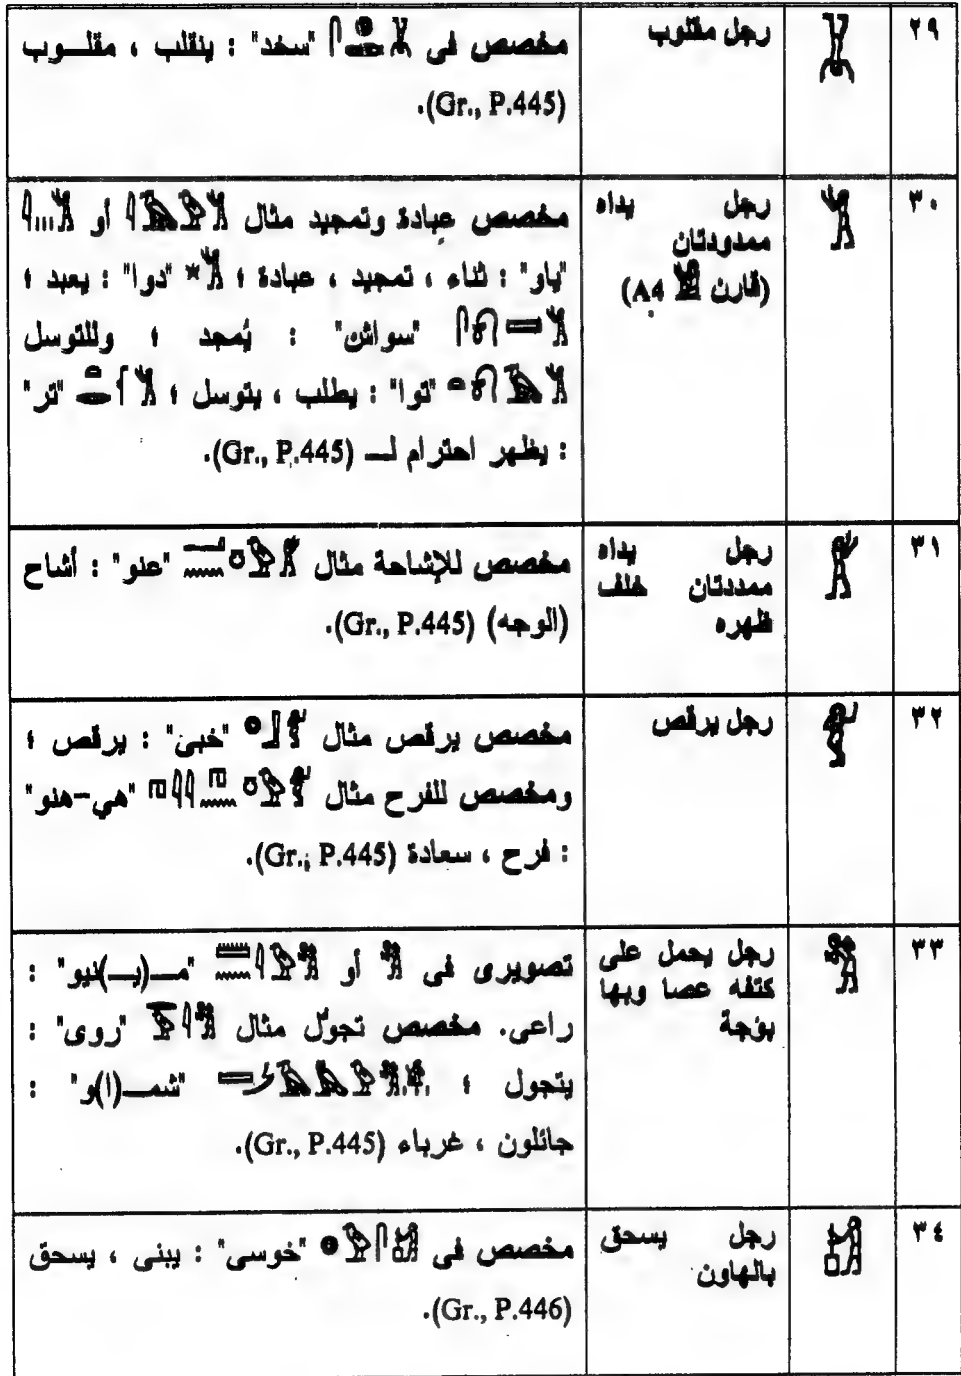 ٢٩
رجل مقلوب
مخصص فى "سخد" : ينقلب ، مقلـوب
(Gr., P.445).
٣٠
رجل يداه
ممدودتان
(قارن A4)
مخصص عبادة وتمجيد مثال أو
"ياو" : ثناء ، تمجيد ، عبادة ؛ "دوا" : يعبد ؛
"سواش" : يُمجد ؛ وللتوسل
"توا" : يطلب ، يتوسل ؛ "تر"
: يظهر احترام لــ (Gr., P.445).
٣١
رجل يداه
ممددتان خلف
ظهره
مخصص للإشاحة مثال "عنو" : أشاح
(الوجه) (Gr., P.445).
٣٢
رجل يرقص
مخصص يرقص مثال "خبى" : يرقص ؛
ومخصص للفرح مثال "هي-هنو"
: فرح ، سعادة (Gr., P.445).
٣٣
رجل يحمل على
كتفه عصا وبها
بؤجة
تصويرى فى أو "مــ(يــ)نيو" :
راعى. مخصص تجوّل مثال "روى" :
يتجول ؛ "شمــ(ا)و" :
جائلون ، غرباء (Gr., P.445).
٣٤
رجل يسحق
بالهاون
مخصص فى "خوسى" : يبنى ، يسحق
(Gr., P.446).